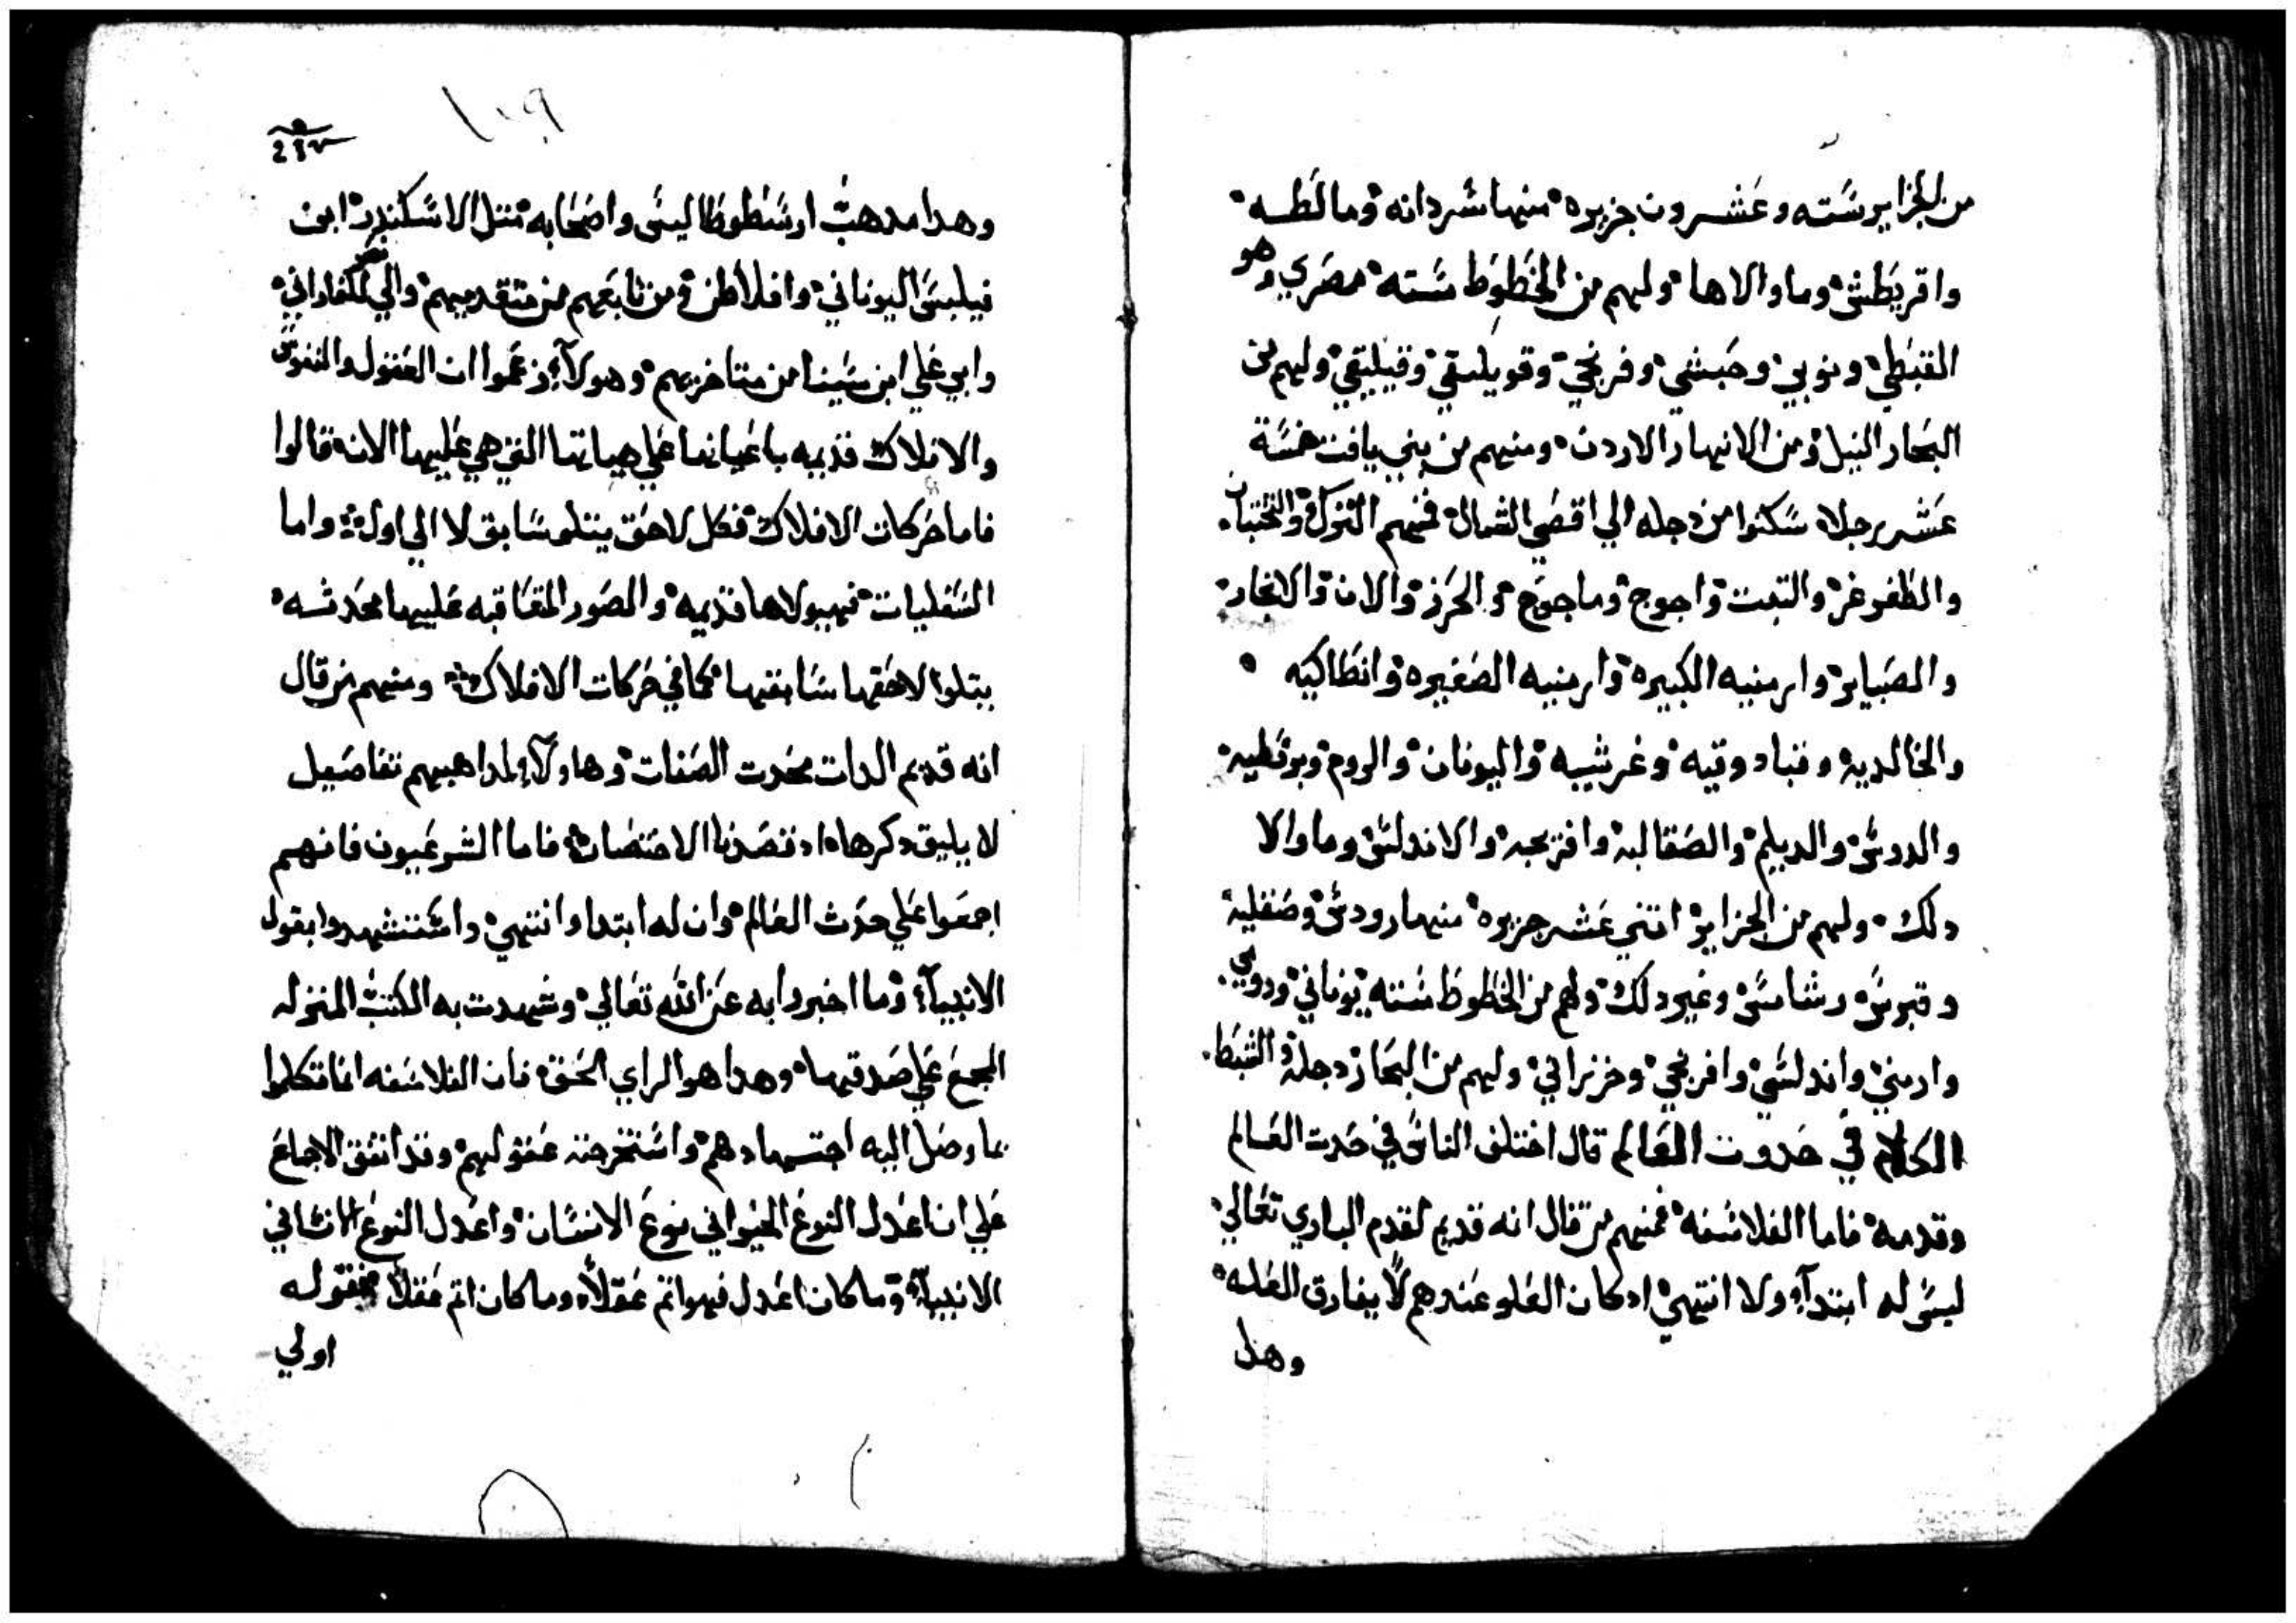 من الجزاير سته وعشرون جزيره منها شردانه ومالطه
واقريطش وماوالاها ولهم من الخطوط سته مصري وهو
القبطي ونوبي وحبشي وفرنجي وقويلىقي وقيليقي ولهم من
البحار النيل ومن الانهار الاردن ومنهم من بني يافت خمسة
عشر رجلا سكنوا من دجله الي اقصي الشمال فمنهم الترك والنختيان
والطغوغز والتبت واجوج وماجوج والخرز والالان والانجاز
والصنياير وارمنيه الكبيره وارمنيه الصغيره وانطاكيه
والخالديه وقبادوقيه وغرشيه واليونان والروم وبوقطيه
والدوش والديلم والصقالبه وافرنجه والاندلس وماوالا
دلك ولهم من الجزاير اتني عشر جزيره منها رودس وصقليه
وقبرس وشامس وغير دلك ولهم من الخطوط سته يوناني ورومي
وارمني واندلسي وافرنجي وخزراني ولهم من البحار دجله والقبط
الكلام في حدوت العالم قال اختلف الناس في حدت العالم
وقدمه فاما الفلاسفه فمنهم من قال انه قديم لقدم الباري تعالي
ليس له ابتدآء ولا انتهي ادكان العلو عندهم لا يفارق العله
وهدا
237
وهدا مدهب ارسطوطاليس واصحابه متل الاسكندر ابن
فيلبس اليوناني وافلاطن ومن تابعهم من متقدميهم والي نصر الفاراني
وابي علي ابن سينا من متاخريهم وهولآء زعموا ان العقول والنفوس
والافلاك قديمه باعيانها علي هياتها التي هي عليها الان قالوا
فاما حركات الافلاك فكل لاحق يتلو سابق لا الي اول واما
السفليات فهيولاها قديمه والصور المتعاقبه عليها محدثه
يتلوا لاحقها سابقها كما في حركات الافلاك ومنهم من قال
انه قديم الدات محدت الصفات وهاولآء لمداهبهم تفاصيل
لا يليق دكرها اد قصدنا الاختصار فاما الشرعيون فانهم
اجمعوا علي حدث العالم وان له ابتدا وانتهي واستشهدوا بقول
الانبيآء وما اخبروا به عن الله تعالي وشهدت به الكتب المنزله
المجمع علي صدقها وهدا هو الراي الحق فان الفلاسفه انما تكلموا
بما وصل اليه اجتهادهم واستخرجته عقولهم وقد اتفق الاجماع
علي ان اعدل النوع الحيواني نوع الانسان واعدل النوع الانساني
الانبيآء وما كان اعدل فهو اتم عقلا وما كان اتم عقلا فقوله
اولي